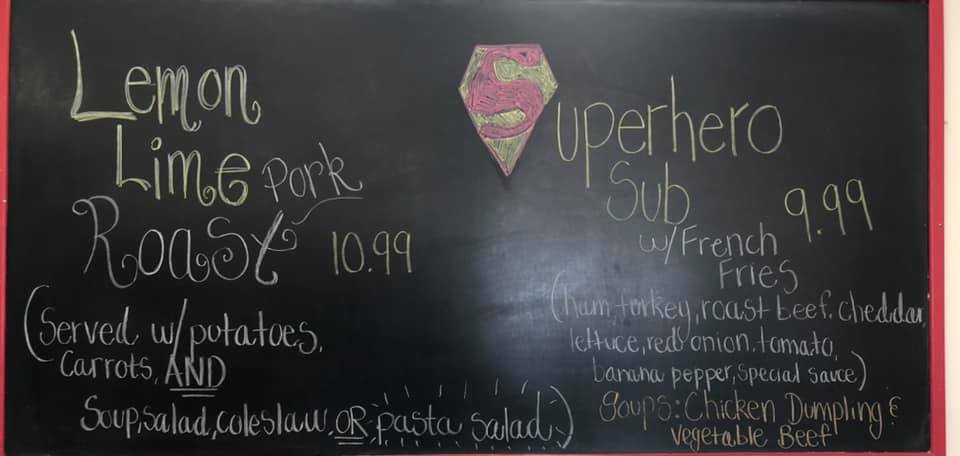 Lemon
Lime Pork
Roast 10.99
(Served w/potatoes,
Carrots, AND
Soup, salad, coleslaw, OR pasta salad)
Superhero
Sub 9.99
w/French
Fries
(ham, turkey, roast beef, cheddar,
lettuce, red onion, tomato,
banana pepper, special sauce)
Soups: Chicken Dumpling &
Vegetable Beef